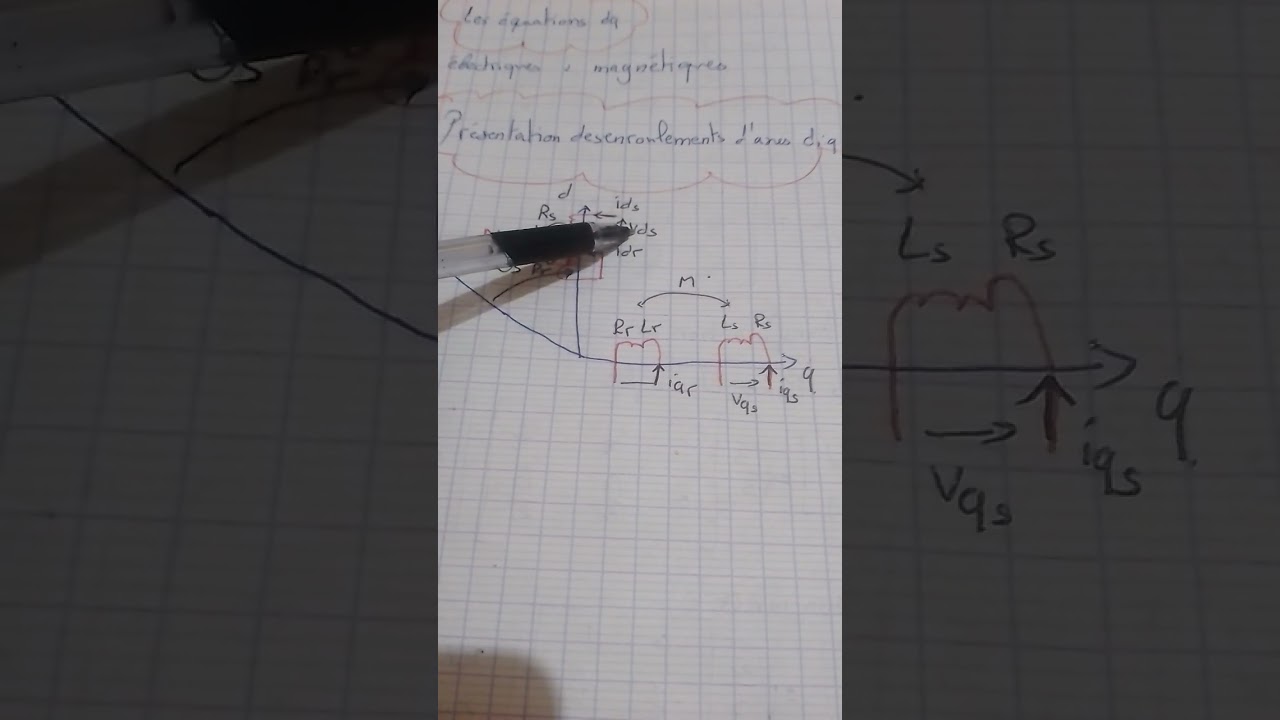 Les équations dq
électriques , magnétiques
Présentation desenroulements d'axes d,q
d
ids
Rs
Vds
idr
M
Rr Lr
Ls Rs
q
iqr
Vqs
iqs
Ls Rs
q
Vqs
iqs